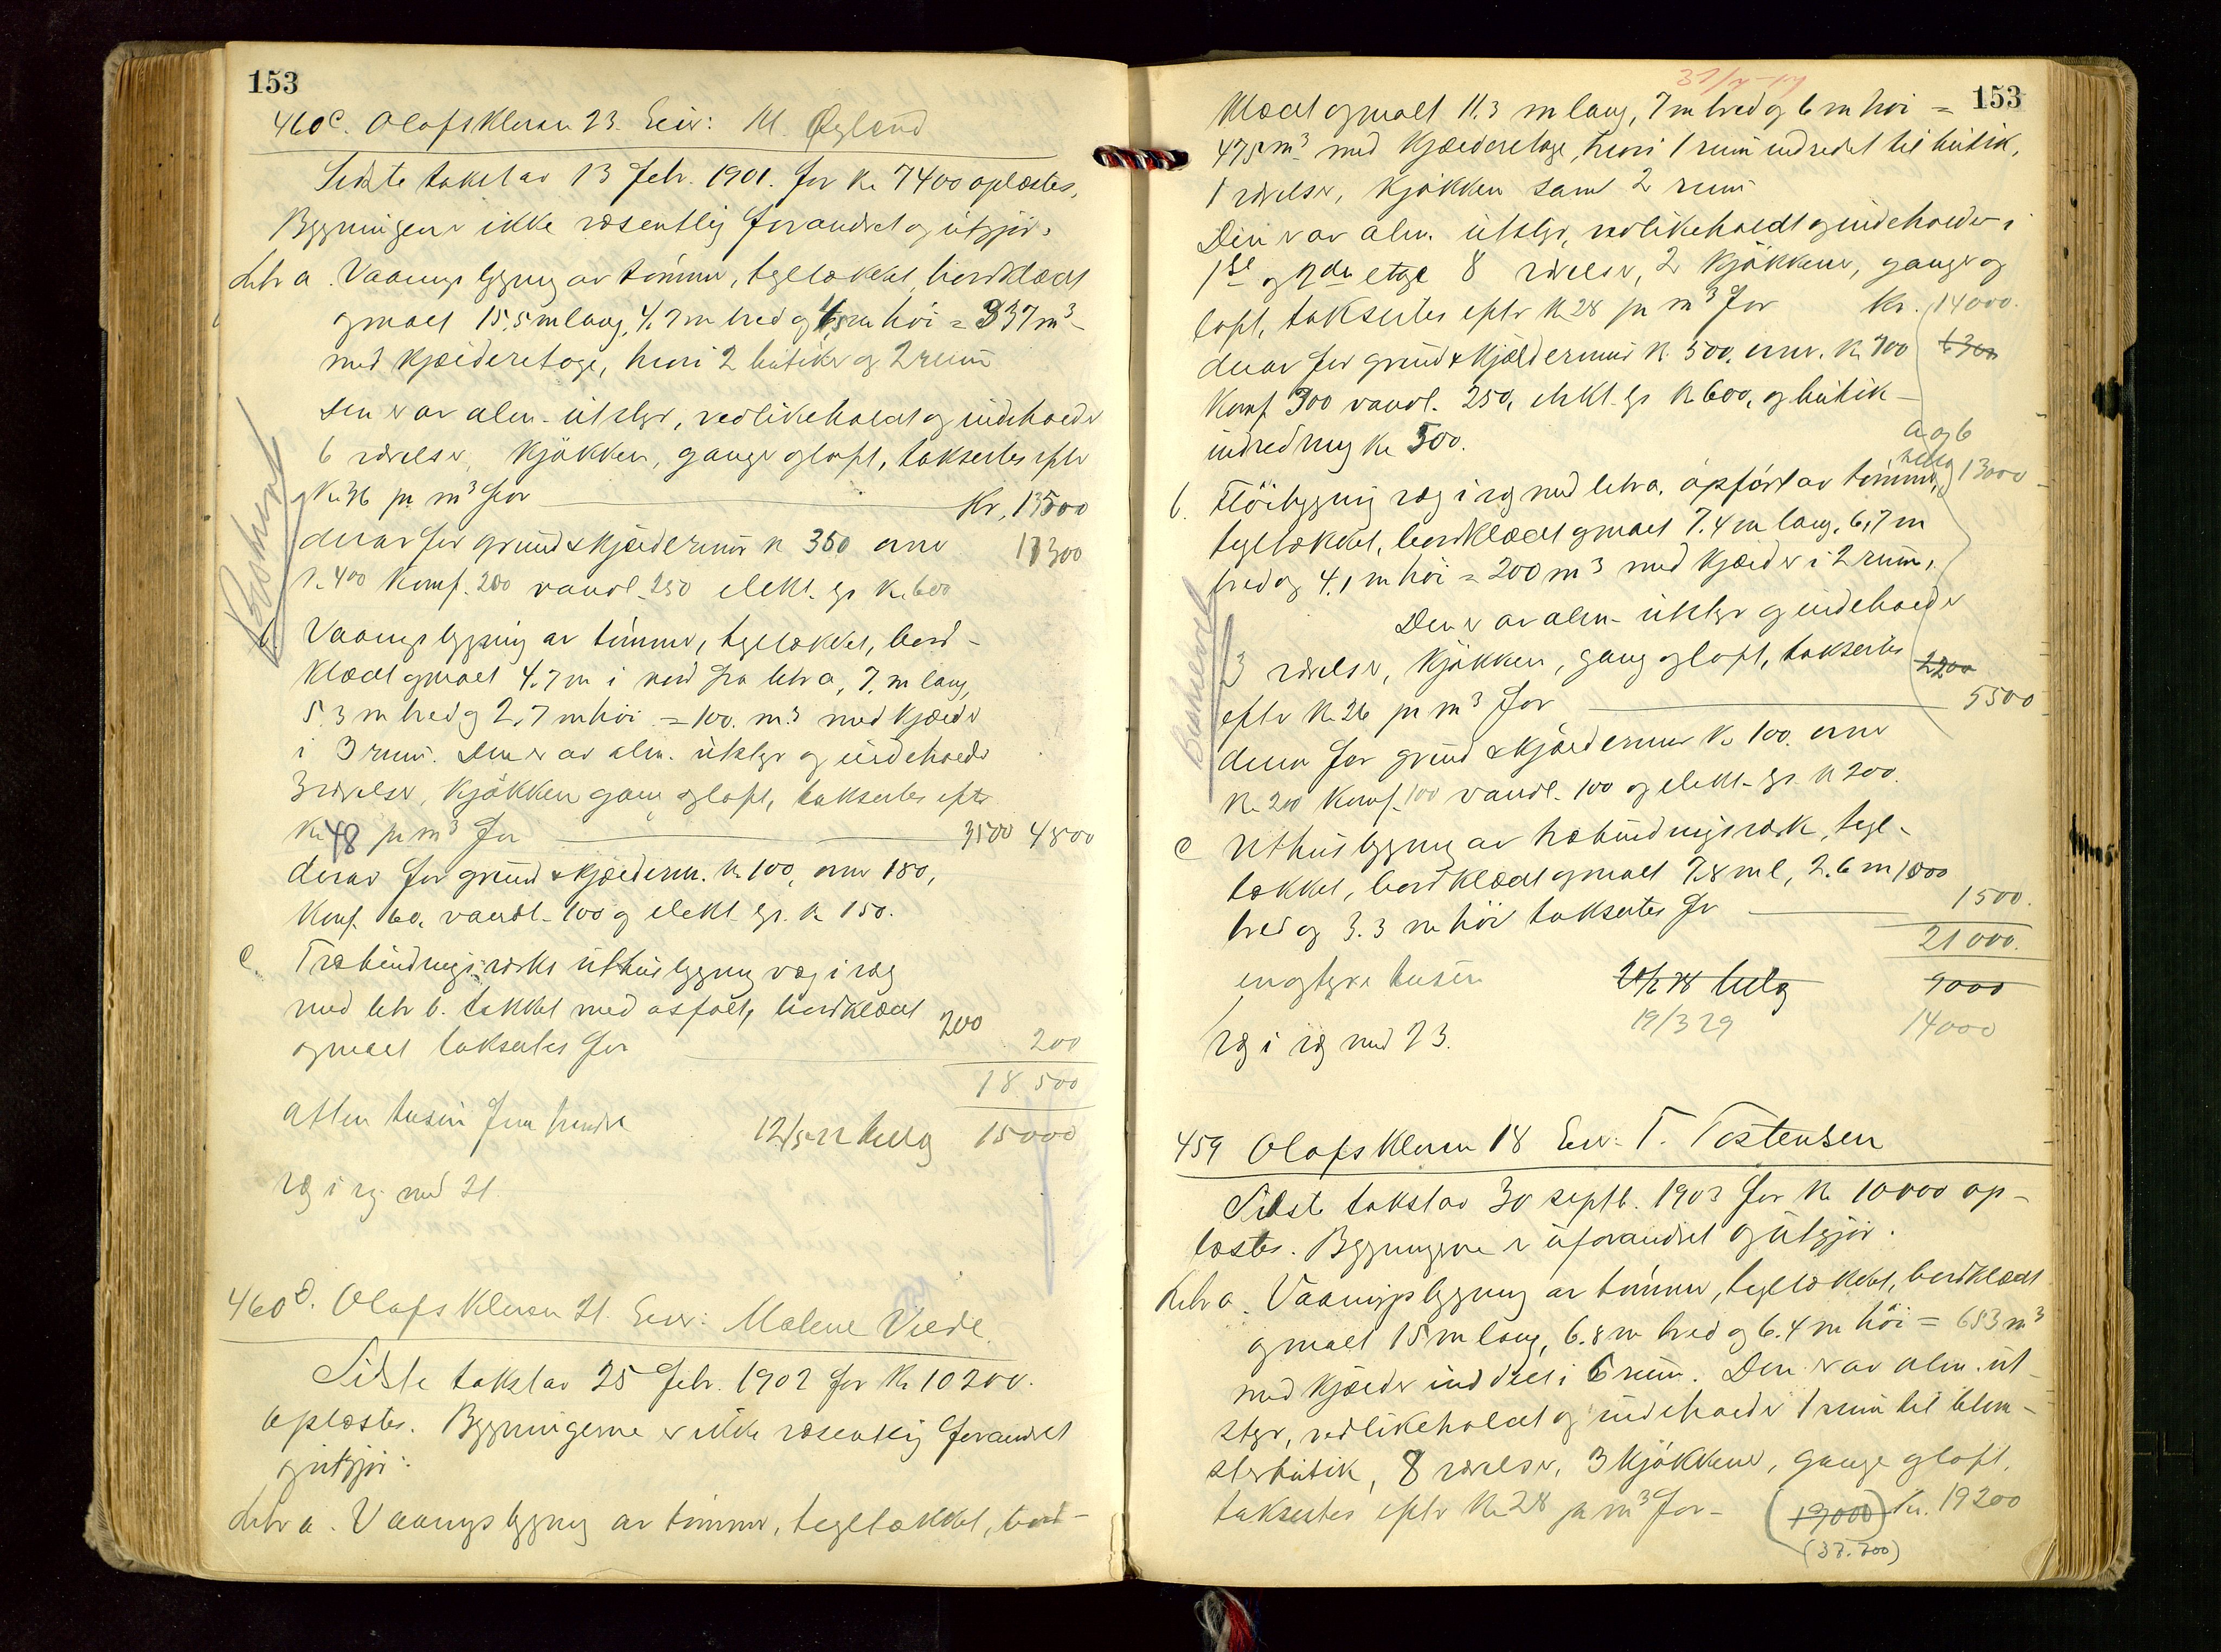 153
460c. Olafskleven 23. Eier: M. Øgland
Sidste takst av 13 febr. 1901. for kr 7400 oplæstes,
Bygningene er ikke væsentlig forandret og utgjør:
Litr a. Vaaningsbygning av tømmer, tegltækket, bordklædt
og malt 15,5 m lang, 4.7 m bred og m høi = 337 m³
med kjælderetage, hvori 2 butiker og 2 rum
Den er av alm. utstyr, vedlikeholdt og indeholder
6 værelser, kjøkken, gange og loft, takseres efter
kr 36 pr m³ for Kr. 13500
derav for grund & kjældermur kr 350 ovne 11300
kr 400 komf. 200 vandl. 250 elekt. lys kr. 600
b. Vaaningsbygning av tømmer, tegltækket, bord-
klædt og malt 4.7 m i nord fra litr a, 7. m lang,
5.3 m bred og 2,7 m høi = 100. m³ med kjælder
i 3 rum. Den er av alm. utstyr og indeholder
3 værelser, kjøkken gang og loft, takseres efter
kr 48 pr m³ for 3500 4800
derav for grund & kjælderm. kr 100, ovne 180,
komf. 60, vandl. 100 og elekt. lys. kr 150.
c. Træbindingsverks uthusbygning væg i væg
med litr b. tækket med asfalt, bordklædt
og malt takseres for 200 200
18.500
atten tusin fem hundre 12/5 22 15000
væg i væg med 21.
460d. Olafskleven 21. Eier: Malene Viede.
Sidste takst av 25 febr. 1902 for kr 10200.
oplæstes. Bygningerne er ikke væsentlig forandret
og utgjør:
Litr a. Vaaningsbygning av tømmer, tegltækket, bord-
153
klædt og malt 11.3 m lang, 7 m bred og 6 m høi =
475 m³ med kjælderetage, hvori 1 rum indredet til butik,
1 værelse, kjøkken samt 2 rum
Den er av alm. utstyr, vedlikeholdt og indeholder i
1ste og 2den etage 8 værelser, 2 kjøkkener, gange og
loft, takseres efter kr 28 pr m³ for Kr. 14000.
derav for grund & kjældermur kr. 500. ovne. kr 700 6300
komf 300 vandl. 250, elekt. lys kr 600, og butik-
indredning kr 500.
a og b
13000
b. Fløibygning væg i væg med litr a. opført av tømmer,
tegltækket, bordklædt og malt 7.4 m lang, 6,7 m
bred og 4.1 m høi = 200 m³ med kjælder i 2 rum,
Den er av alm. utstyr og indeholder
3 værelser, kjøkken, gang og loft, takseres 2200
efter kr 26 pr m³ for 5500
derav for grund & kjældermur kr 100. ovne
kr 200 komf. 100 vandl. 100 og elekt. lys. kr 200.
c Uthusbygning av træbindingsverk, tegl-
tækket, bordklædt og malt 7.8 m l, 2.6 m 1000
bred og 3.3 m høi takseres for 1500.
21000.
en og tyve tusin 9000
19/3 29 14000
væg i væg med 23.
459 Olafskleven 18 Eier: T. Tostensen
Sidste takst av 30 septb. 1903 for kr 10000 op-
læstes. Bygningerne er uforandret og utgjør:
Litr a. Vaaningsbygning av tømmer, tegltækket, bordklædt
og malt 15 m lang, 6.8 m bred og 6.4 m høi = 653 m³
med kjælder inddelt i 6 rum. Den er av alm. ut-
styr, vedlikeholdt og indeholder 1 rum til blom-
sterbutik, 8 værelser, 3 kjøkkener, gange og loft,
takseres efter kr 28 pr m³ for (19000) Kr. 19200